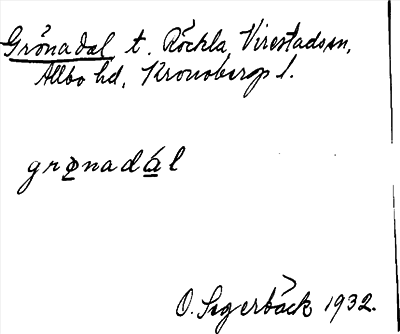 Grönadal t. Röckla, Virestads sn,
Allbo hd, Kronobergs l.
grønadál
O. Sagerbäck 1932.